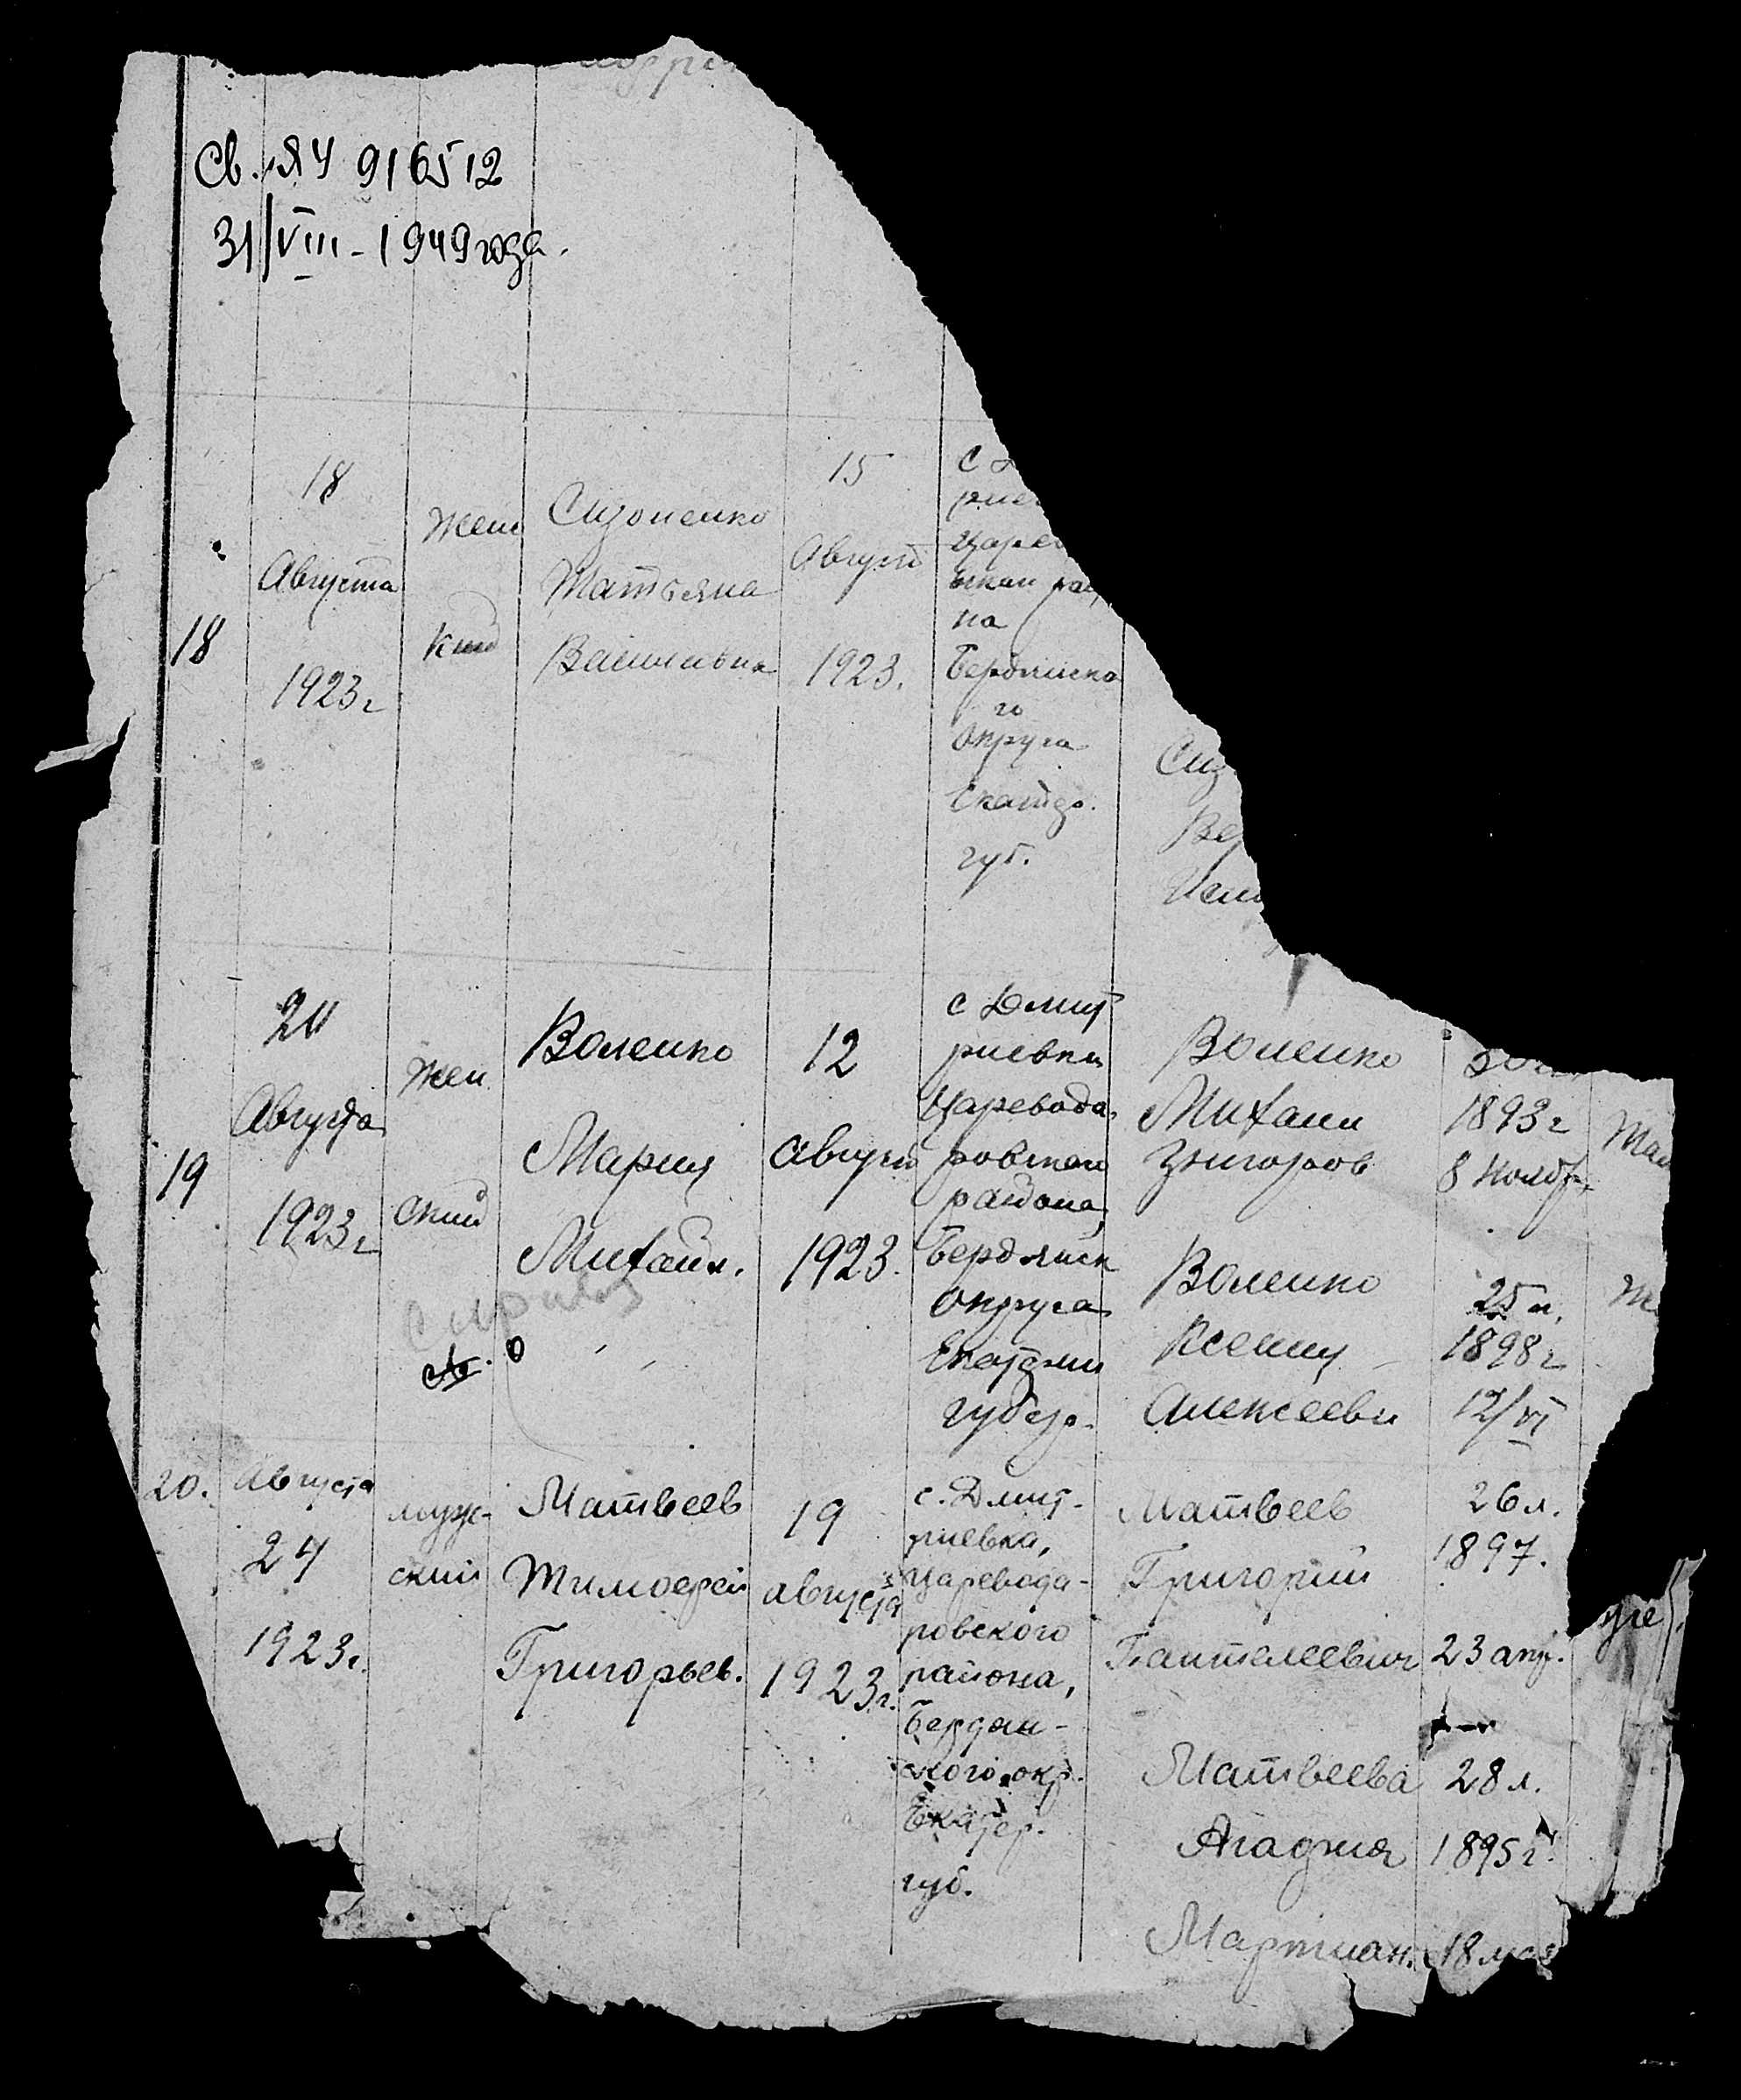 Св. ЯУ 916512
31/VIII - 1949 года.
18
18
Августа
1923 г
Жен
кий
Сизоненко
Татьяна
Васильевна
15
Август
1923.
с
рие
Царе
на
Бердянско
го
Округа
Екатер.
губ.
Сиз
19
20
Августа
1923 г
Жен
ский
Воленко
Мария
Михайл.
12
Август
1923.
с Дмит
риевки
Царевода
ровском
района,
Бердянск
Округа
Екатерин
губер.
Воленко
Михаил
Григоров
1893 г
8 Ноябр.
Воленко
Ксения
Алексеевн
25 л.
1898 г
12/VI
Справка
20.
Августа
24
1923 г.
муж-
ский
Матвеев
Тимофей
Григорьев.
19
августа
1923 г.
с. Дмит-
риевка,
Царевода-
ровского
района,
Бердян-
ского окр.
Екатер.
губ.
Матвеев
Григорий
Пантелеевич
26 л.
1897.
23 апр.
Матвеева
Агафия
Мартиан.
28 л.
1895 г.
18 мая